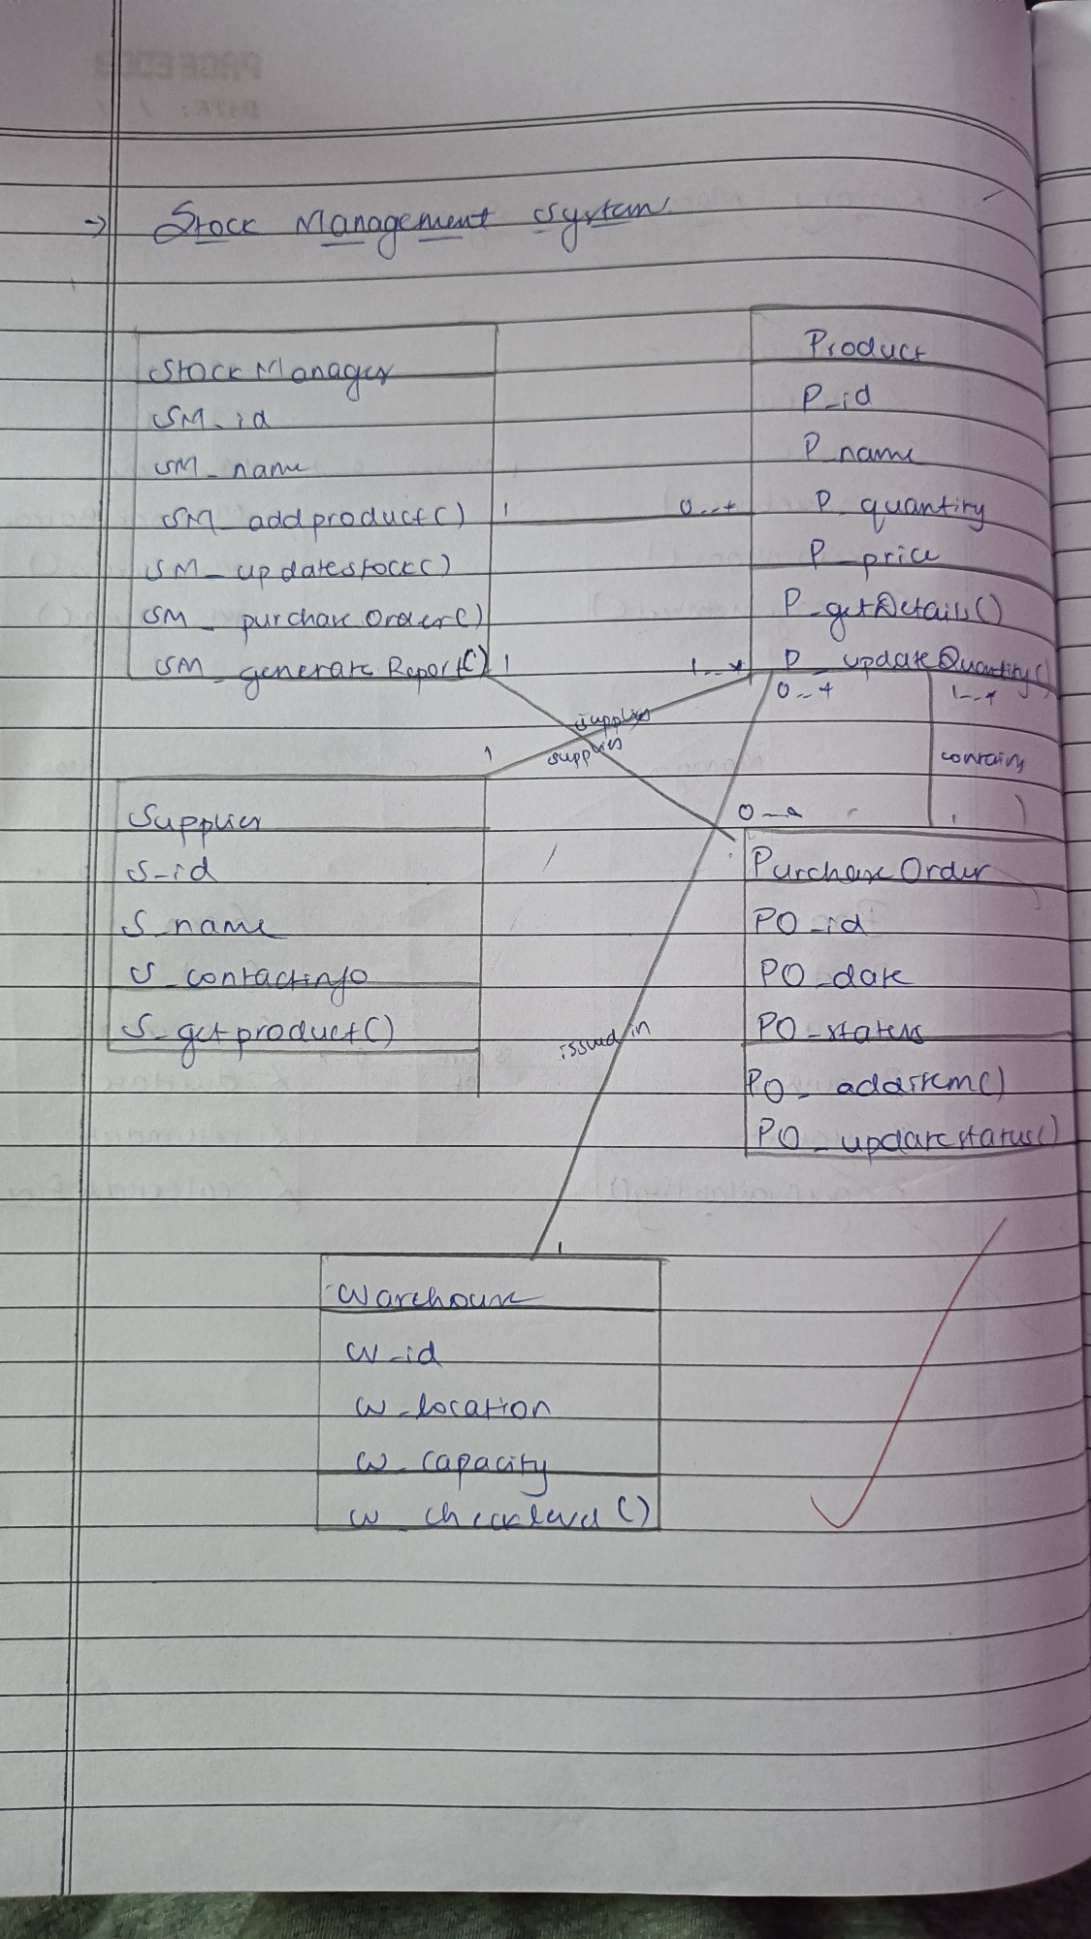 → Stock Management System
Stock Manager
SM_id
SM_name
SM_addproduct()
SM_updatestock()
SM_purchaseOrder()
SM_generateReport()
Product
P_id
P_name
P_quantity
P_price
P_getDetails()
P_updateQuantity()
1 0..*
1 1..*
0..* 1..*
supplies
supplies
1
contains
0..*
1
Supplier
S_id
S_name
S_contactinfo
S_getproduct()
Purchase Order
PO_id
PO_date
PO_status
PO_additem()
PO_updatestatus()
issued in
1
Warehouse
W_id
W_location
W_capacity
W_checklevel()